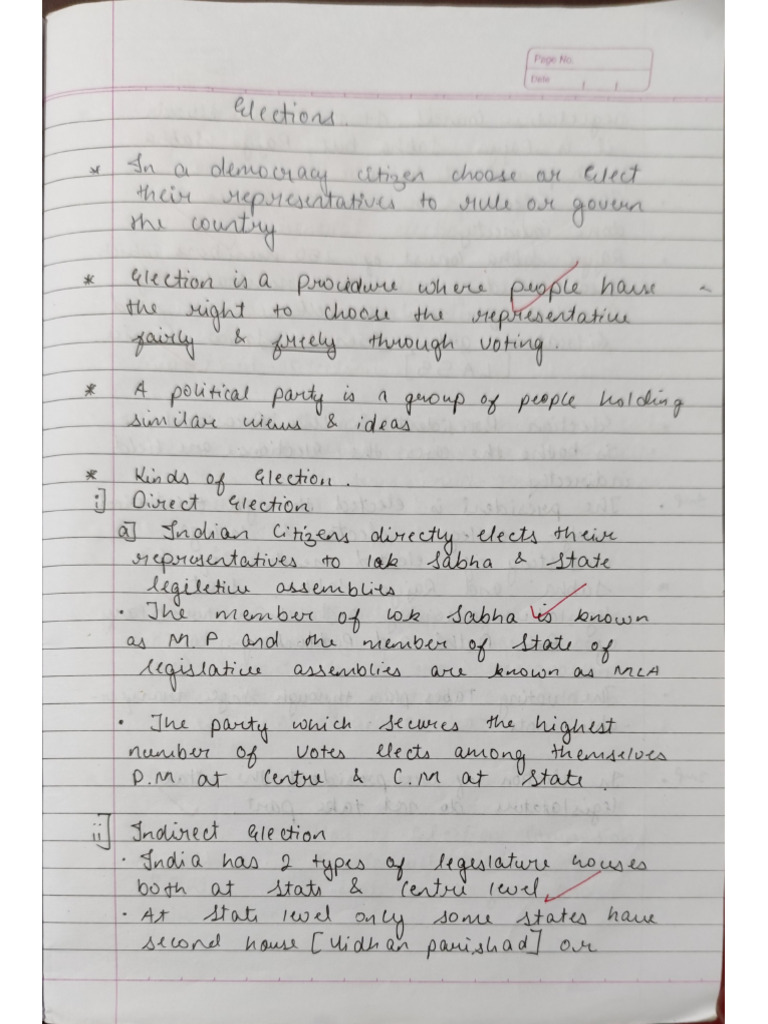 Page No.
Date
Elections.
* In a democracy citizen choose or elect
their representatives to rule or govern
the country
* Election is a procedure where people have
the right to choose the representative
fairly & freely through voting.
* A political party is a group of people holding
similar views & ideas
* Kinds of Election.
i] Direct Election
a] Indian Citizens directly elects their
representatives to lok Sabha & State
legiletive assemblies
• The member of lok Sabha is known
as M.P and the member of State of
legislative assemblies are known as MLA
• The party which secures the highest
number of votes elects among themselves
P.M at Centre & C.M at State.
ii] Indirect Election
• India has 2 types of legislature houses
both at state & Centre level
• At State level only some states have
second house [Vidhan parishad] or